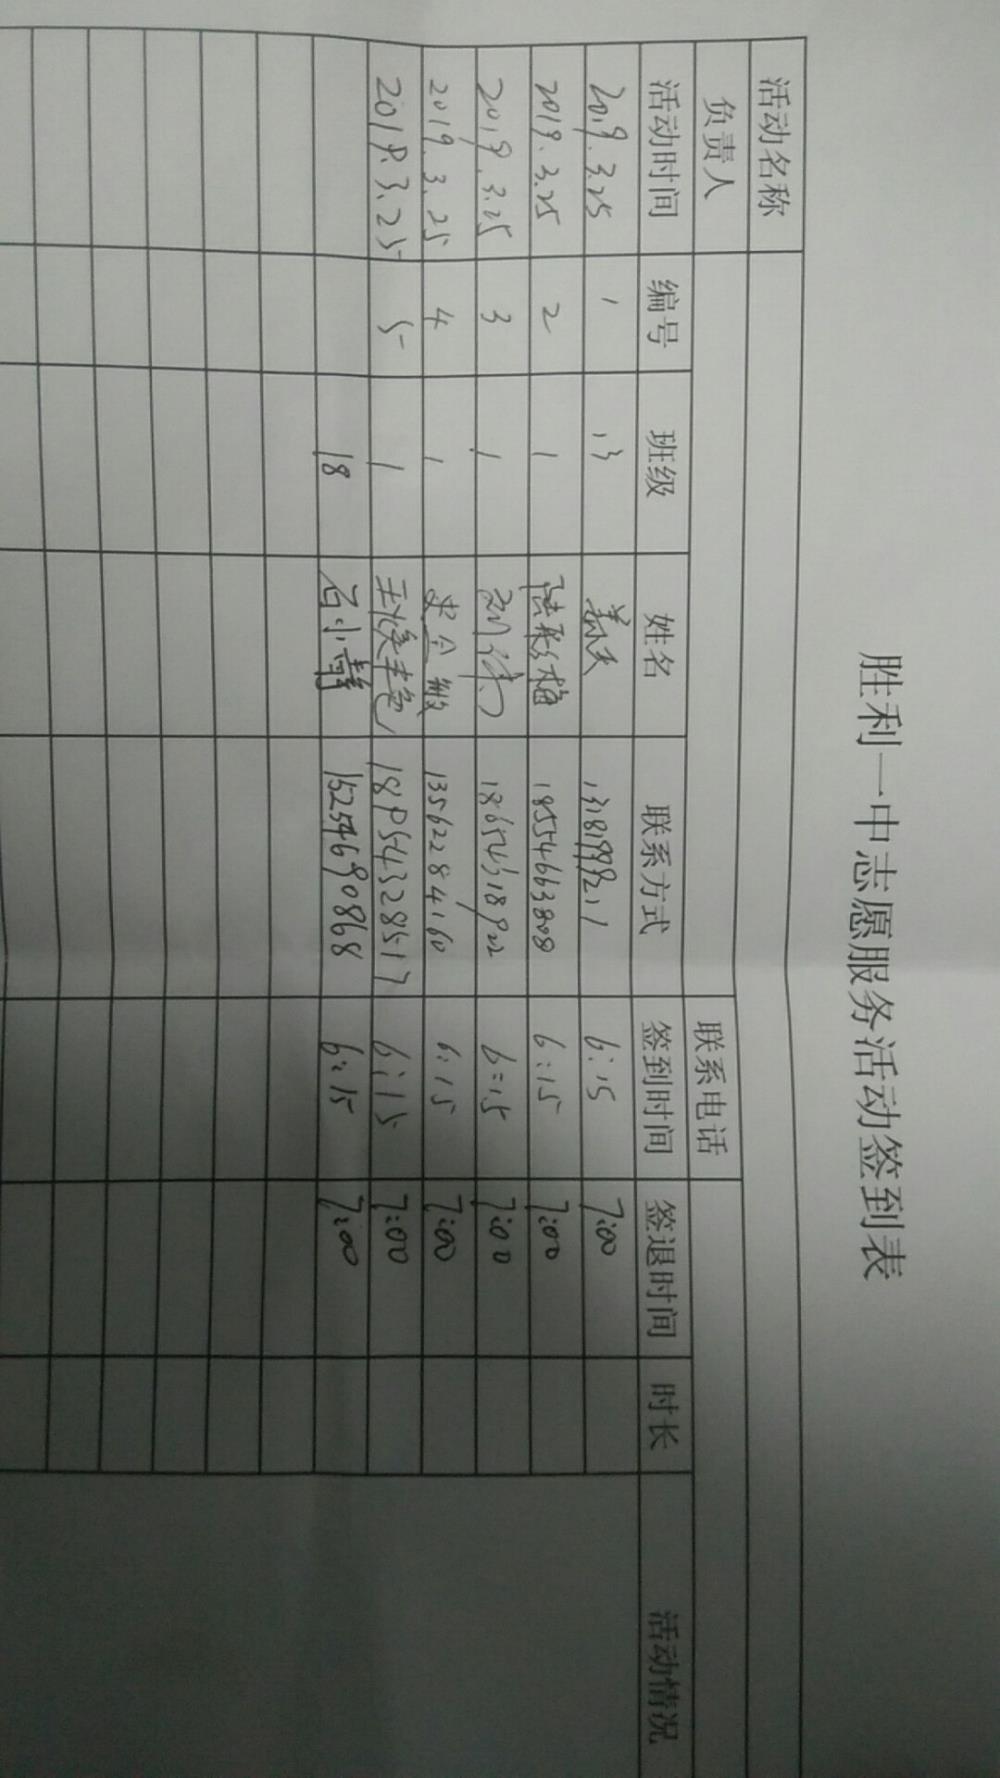 胜利一中志愿服务活动签到表
活动名称
负责人 联系电话
活动时间 编号 班级 姓名 联系方式 签到时间 签退时间 时长 活动情况
2019.3.25 1 13 6:15 7:00
2019.3.25 2 1 18554663808 6:15 7:00
2019.3.25 3 1 6:15 7:00
2019.3.25 4 1 史金敏 13562284160 6:15 7:00
2019.3.25 5 1 18954328517 6:15 7:00
18 石小静 15254690868 6:15 7:00